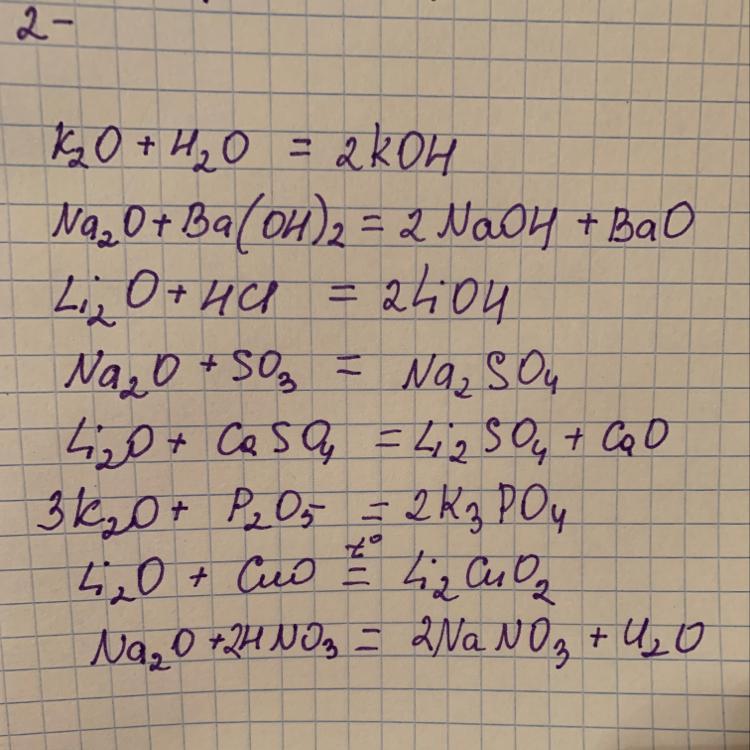 2-
K₂O + H₂O = 2KOH
Na₂O + Ba(OH)₂ = 2NaOH + BaO
Li₂O + HCl = 2LiOH
Na₂O + SO₃ = Na₂SO₄
Li₂O + CaSO₄ = Li₂SO₄ + CaO
3K₂O + P₂O₅ = 2K₃PO₄
Li₂O + CuO =t° Li₂CuO₂
Na₂O + 2HNO₃ = 2NaNO₃ + H₂O